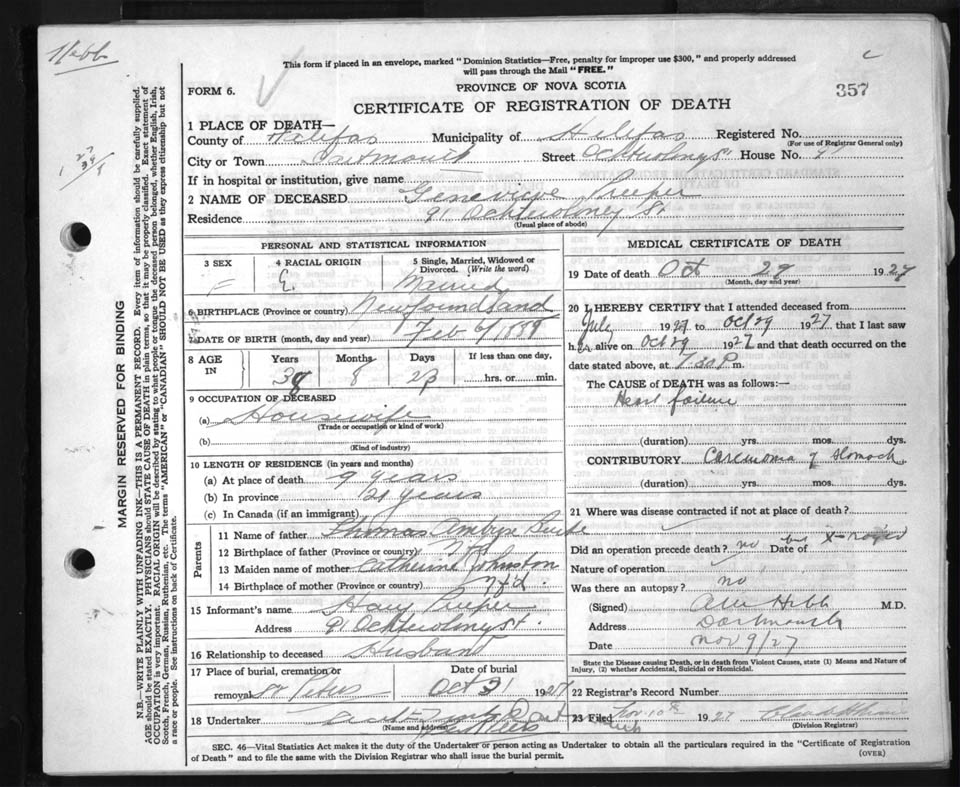 Hebb
This form if placed in an envelope, marked "Dominion Statistics—Free, penalty for improper use $300," and properly addressed
will pass through the Mail "FREE."
FORM 6.
PROVINCE OF NOVA SCOTIA
357
CERTIFICATE OF REGISTRATION OF DEATH
1 PLACE OF DEATH—
County of Halifax Municipality of Halifax Registered No.
(For use of Registrar General only)
City or Town Dartmouth Street Ochterloney St House No. 91
If in hospital or institution, give name
2 NAME OF DECEASED Genevieve Peeper
Residence 91 Ochterloney St
(Usual place of abode)
PERSONAL AND STATISTICAL INFORMATION
3 SEX 4 RACIAL ORIGIN 5 Single, Married, Widowed or Divorced. (Write the word)
F E. Married
6 BIRTHPLACE (Province or country) Newfoundland
7 DATE OF BIRTH (month, day and year) Feb 6/1889
8 AGE IN Years Months Days If less than one day,
38 8 23 hrs. or min.
9 OCCUPATION OF DECEASED
(a) Housewife
(Trade or occupation or kind of work)
(b)
(Kind of industry)
10 LENGTH OF RESIDENCE (in years and months)
(a) At place of death 9 years
(b) In province 21 years
(c) In Canada (if an immigrant)
Parents
11 Name of father Thomas
12 Birthplace of father (Province or country) Nfd
13 Maiden name of mother Catherine Johnston
14 Birthplace of mother (Province or country) Nfd.
15 Informant's name Harry Peeper
Address 91 Ochterloney St.
16 Relationship to deceased Husband
17 Place of burial, cremation or removal St Peters
Date of burial Oct 31 1927
18 Undertaker
(Name and address)
MEDICAL CERTIFICATE OF DEATH
19 Date of death Oct 29 1927
(Month, day and year)
20 I HEREBY CERTIFY that I attended deceased from
July 1927 to Oct 29 1927, that I last saw
her alive on Oct 29 1927 and that death occurred on the
date stated above, at 7.30 P m.
The CAUSE of DEATH was as follows:
Heart failure
(duration) yrs. mos. dys.
CONTRIBUTORY Carcinoma of Stomach
(duration) yrs. mos. dys.
21 Where was disease contracted if not at place of death?
Did an operation precede death? no but Date of X-rayed
Nature of operation
Was there an autopsy? no
(Signed) Hebb M.D.
Address Dartmouth
Date Nov 9/27
State the Disease causing Death, or in death from Violent Causes, state (1) Means and Nature of
Injury, (2) whether Accidental, Suicidal or Homicidal.
22 Registrar's Record Number
23 Filed Nov 10th 1927
(Division Registrar)
SEC. 46—Vital Statistics Act makes it the duty of the Undertaker or person acting as Undertaker to obtain all the particulars required in the "Certificate of Registration
of Death" and to file the same with the Division Registrar who shall issue the burial permit. (OVER)
MARGIN RESERVED FOR BINDING
N.B.—WRITE PLAINLY WITH UNFADING INK—THIS IS A PERMANENT RECORD. Every item of information should be carefully supplied.
AGE should be stated EXACTLY. PHYSICIANS should STATE CAUSE OF DEATH in plain terms, so that it may be properly classified. Exact statement of
OCCUPATION is very important. RACIAL ORIGIN will be described by stating to what people or tongue the deceased person belonged, whether English, Irish,
Scotch, French, German, Russian, Ruthenian, etc. The terms "AMERICAN" or "CANADIAN" SHOULD NOT BE USED as they express citizenship but not
a race or people. See instructions on back of Certificate.